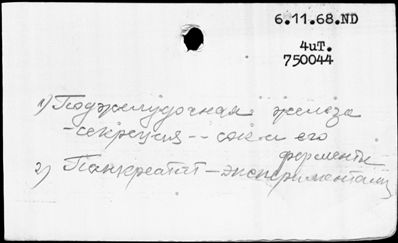 6.11.68.ND
4иT.
750044
1) Поджелудочная железа
-секреция -- сок и его
ферменты
2) Панкреатит - экспериментальн